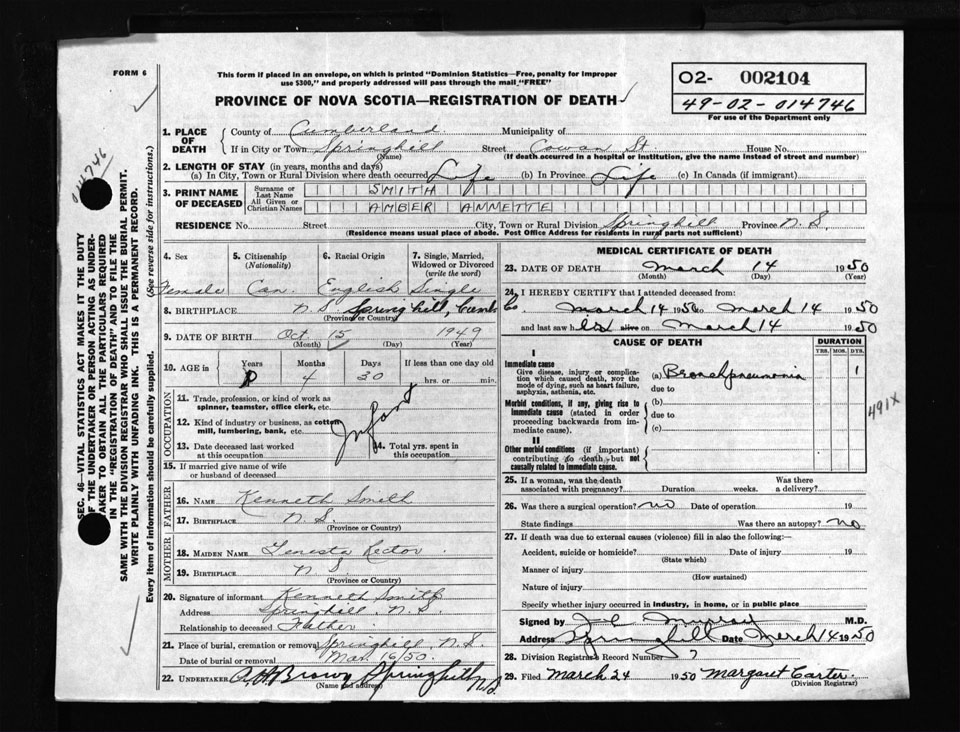 FORM 6
This form if placed in an envelope, on which is printed "Dominion Statistics—Free, penalty for improper
use $300," and properly addressed will pass through the mail "FREE"
PROVINCE OF NOVA SCOTIA—REGISTRATION OF DEATH
O2- 002104
49-02-014746
For use of the Department only
SEC. 46—VITAL STATISTICS ACT MAKES IT THE DUTY
OF THE UNDERTAKER OR PERSON ACTING AS UNDER-
TAKER TO OBTAIN ALL THE PARTICULARS REQUIRED
IN THE "REGISTRATION OF DEATH" AND TO FILE THE
SAME WITH THE DIVISION REGISTRAR WHO SHALL ISSUE THE BURIAL PERMIT.
WRITE PLAINLY WITH UNFADING INK. THIS IS A PERMANENT RECORD.
Every item of information should be carefully supplied. (See reverse side for instructions.)
1. PLACE OF DEATH
County of Cumberland Municipality of
If in City or Town Springhill Street Cowan St. House No.
(Name) (If death occurred in a hospital or institution, give the name instead of street and number)
2. LENGTH OF STAY (in years, months and days)
(a) In City, Town or Rural Division where death occurred Life (b) In Province Life (c) In Canada (if immigrant)
3. PRINT NAME OF DECEASED
Surname or Last Name SMITH
All Given or Christian Names AMBER ANNETTE
RESIDENCE No. Street City, Town or Rural Division Springhill Province N.S.
(Residence means usual place of abode. Post Office Address for residents in rural parts not sufficient)
4. Sex 5. Citizenship (Nationality) 6. Racial Origin 7. Single, Married, Widowed or Divorced (write the word)
Female Can. English Single
8. BIRTHPLACE N.S. Springhill, Cumb Co
(Province or Country)
9. DATE OF BIRTH Oct 15 1949
(Month) (Day) (Year)
10. AGE in Years Months Days If less than one day old
4 30 hrs. or min.
OCCUPATION
11. Trade, profession, or kind of work as
spinner, teamster, office clerk, etc.
12. Kind of industry or business, as cotton
mill, lumbering, bank, etc.
Infant
13. Date deceased last worked
at this occupation
14. Total yrs. spent in
this occupation
15. If married give name of wife
or husband of deceased
FATHER
16. NAME Kenneth Smith
17. BIRTHPLACE N.S.
(Province or Country)
MOTHER
18. MAIDEN NAME Rector
19. BIRTHPLACE N S
(Province or Country)
20. Signature of informant Kenneth Smith
Address Springhill. N.S.
Relationship to deceased Father
21. Place of burial, cremation or removal Springhill N.S.
Date of burial or removal Mar. 16/50.
22. UNDERTAKER A.H. Brown Springhill N.S.
(Name and address)
MEDICAL CERTIFICATE OF DEATH
23. DATE OF DEATH March 14 1950
(Month) (Day) (Year)
24. I HEREBY CERTIFY that I attended deceased from:
March 14 1950 to March 14 1950
and last saw h alive on March 14 1950
CAUSE OF DEATH
DURATION
YRS. MOS. DYS.
I
Immediate cause
Give disease, injury or compli-
cation which caused death, NOT the
mode of dying, such as heart failure,
asphyxia, asthenia, etc.
(a) Bronchpneumonia 1
due to
Morbid conditions, if any, giving rise to
immediate cause (stated in order
proceeding backwards from im-
mediate cause).
(b)
due to
(c)
491X
II
Other morbid conditions (if important)
contributing to death but not
causally related to immediate cause.
25. If a woman, was the death
associated with pregnancy? Duration weeks. Was there
a delivery?
26. Was there a surgical operation? no Date of operation 19
State findings Was there an autopsy? no
27. If death was due to external causes (violence) fill in also the following:
Accident, suicide or homicide? Date of injury 19
(State which)
Manner of injury
(How sustained)
Nature of injury
Specify whether injury occurred in industry, in home, or in public place
Signed by Murray M.D.
Address Springhill Date March 14 1950
28. Division Registrar's Record Number 7
29. Filed March 24 1950 Margaret Carter
(Division Registrar)